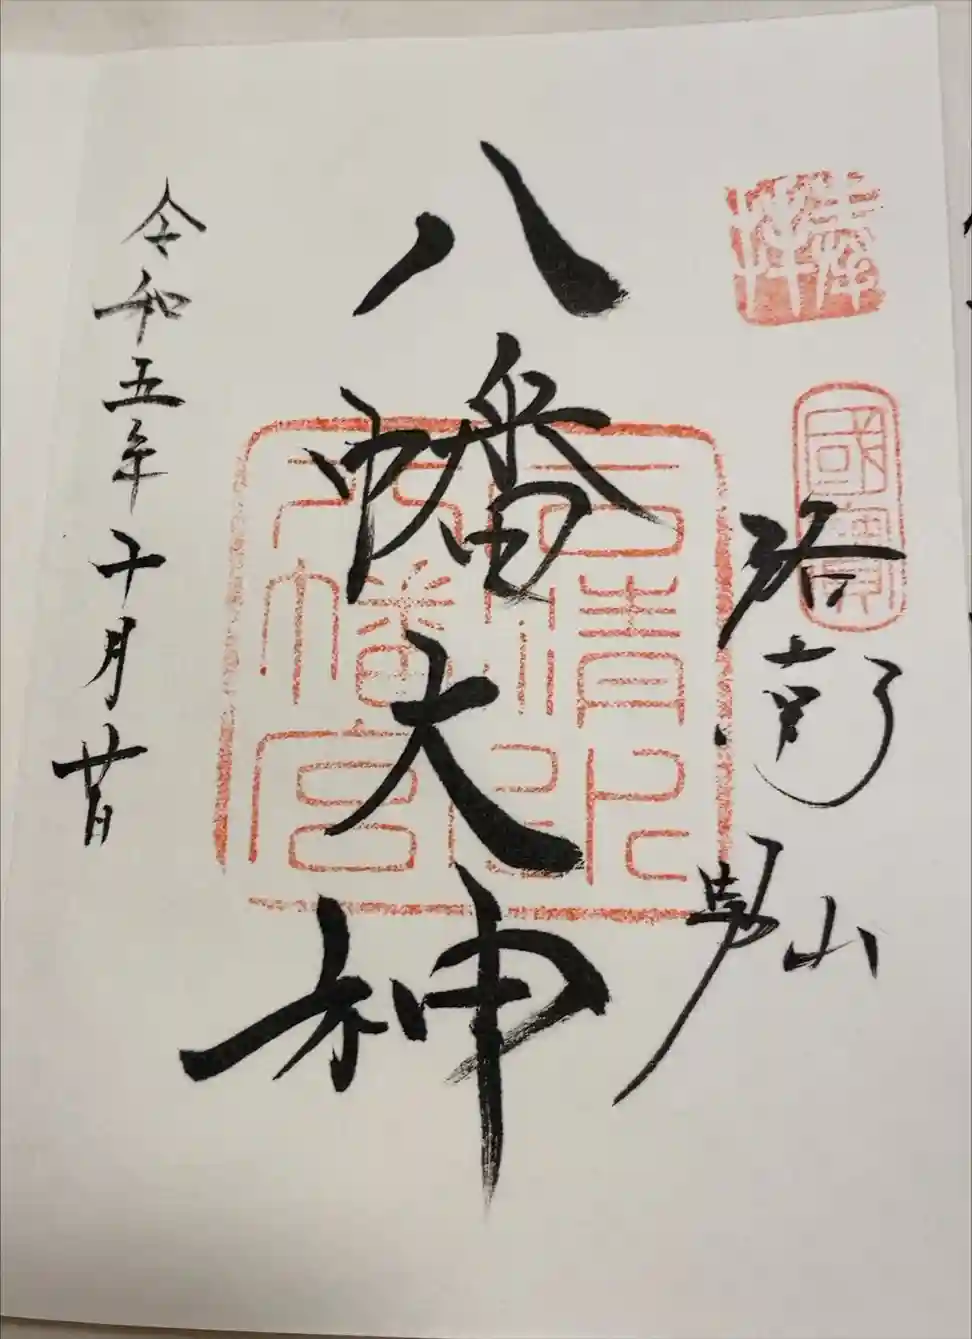 奉拝
國寶
洛南男山
八幡大神
石清水
八幡宮
令和五年十月廿日